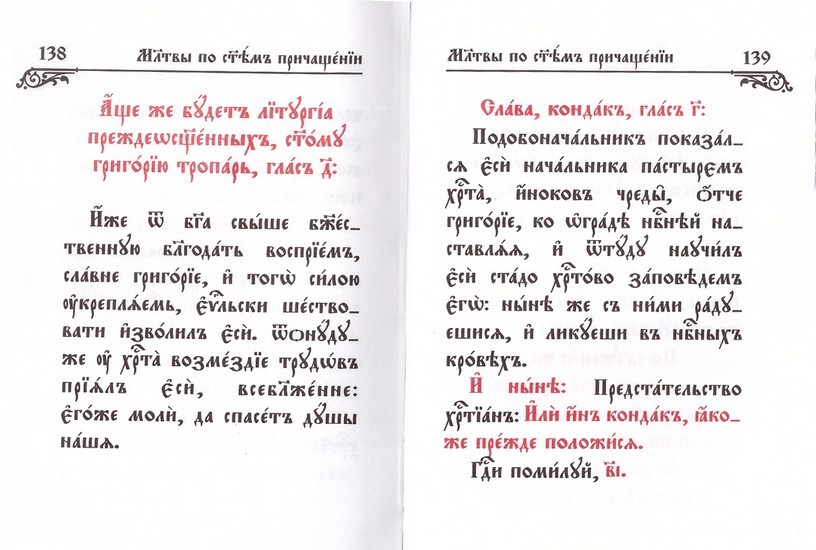 138
Мл҃твы по ст҃ѣ́мъ причаще́нїи
А҆́ще же бꙋ́детъ лїтꙋргі́а
преждеѡсщ҃е́нныхъ, ст҃о́мꙋ
григо́рїю тропа́рь, гла́съ д҃:
И҆́же ѿ бг҃а свы́ше бж҃е́с_
твеннꙋю бл҃года́ть воспрїе́мъ,
сла́вне григо́рїе, и҆ тогѡ̀ си́лою
ᲂу҆крепля́емь, є҆ѵⷢ҇льски ше́ство_
вати и҆зво́лилъ є҆сѝ. ѿѻнꙋ́дꙋ_
же ᲂу҆ хрⷭ҇та̀ возме́здїе трꙋдѡ́въ
прїѧ́лъ є҆сѝ, всебл҃же́нне:
є҆го́же молѝ, да спасе́тъ дꙋ́шы
на́шѧ.
Мл҃твы по ст҃ѣ́мъ причаще́нїи
139
Сла́ва, конда́къ, гла́съ г҃:
Подобонача́льникъ показа́л_
сѧ є҆сѝ нача́льника па́стыремъ
хрⷭ҇та̀, и҆́ноковъ чреды̑, ѻ҆́тче
григо́рїе, ко ѡ҆гра́дѣ нбⷭ҇нѣй на_
ставлѧ́ѧ, и҆ ѿтꙋ́дꙋ наꙋчи́лъ
є҆сѝ ста́до хрⷭ҇то́во за́поведемъ
є҆гѡ̀: ны́нѣ же съ ни́ми ра́дꙋ_
ешисѧ, и҆ ликꙋ́еши въ нбⷭ҇ныхъ
кро́вѣхъ.
И҆ ны́нѣ: Предста́тельство
хрⷭ҇тїа́нъ: И҆лѝ и҆́нъ конда́къ, ꙗ҆́ко_
же пре́жде положи́сѧ.
Гдⷭ҇и поми́лꙋй, в҃і.